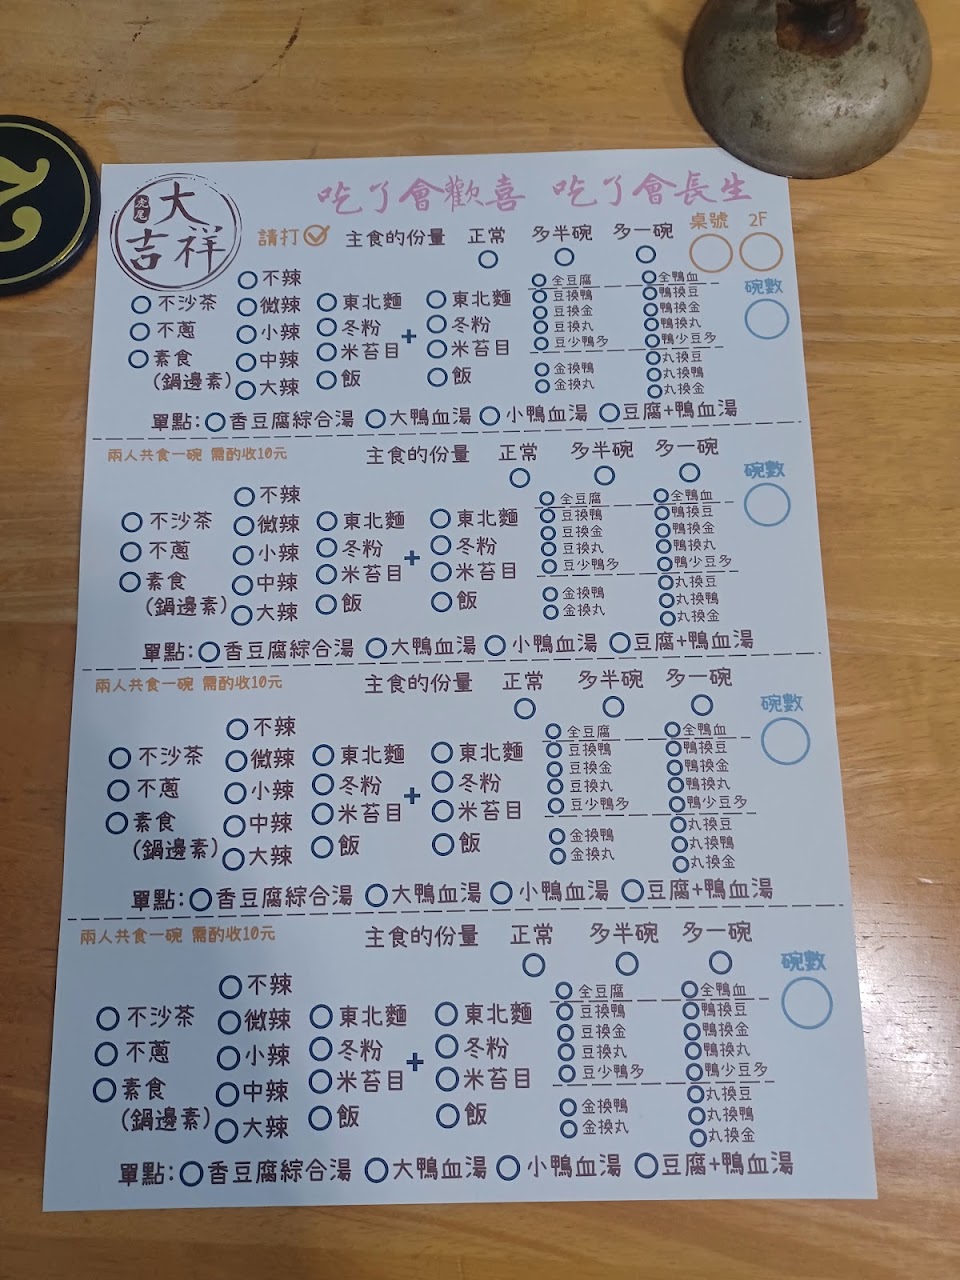 虎尾 大吉祥
吃了會歡喜 吃了會長生
請打 主食的份量 正常 多半碗 多一碗 桌號 2F
碗數
不沙茶
不蔥
素食
(鍋邊素)
不辣
微辣
小辣
中辣
大辣
東北麵
冬粉
米苔目
飯
+
東北麵
冬粉
米苔目
飯
全豆腐
豆換鴨
豆換金
豆換丸
豆少鴨多
金換鴨
金換丸
全鴨血
鴨換豆
鴨換金
鴨換丸
鴨少豆多
丸換豆
丸換鴨
丸換金
單點: 香豆腐綜合湯 大鴨血湯 小鴨血湯 豆腐+鴨血湯
兩人共食一碗 需酌收10元 主食的份量 正常 多半碗 多一碗
碗數
不沙茶
不蔥
素食
(鍋邊素)
不辣
微辣
小辣
中辣
大辣
東北麵
冬粉
米苔目
飯
+
東北麵
冬粉
米苔目
飯
全豆腐
豆換鴨
豆換金
豆換丸
豆少鴨多
金換鴨
金換丸
全鴨血
鴨換豆
鴨換金
鴨換丸
鴨少豆多
丸換豆
丸換鴨
丸換金
單點: 香豆腐綜合湯 大鴨血湯 小鴨血湯 豆腐+鴨血湯
兩人共食一碗 需酌收10元 主食的份量 正常 多半碗 多一碗
碗數
不沙茶
不蔥
素食
(鍋邊素)
不辣
微辣
小辣
中辣
大辣
東北麵
冬粉
米苔目
飯
+
東北麵
冬粉
米苔目
飯
全豆腐
豆換鴨
豆換金
豆換丸
豆少鴨多
金換鴨
金換丸
全鴨血
鴨換豆
鴨換金
鴨換丸
鴨少豆多
丸換豆
丸換鴨
丸換金
單點: 香豆腐綜合湯 大鴨血湯 小鴨血湯 豆腐+鴨血湯
兩人共食一碗 需酌收10元 主食的份量 正常 多半碗 多一碗
碗數
不沙茶
不蔥
素食
(鍋邊素)
不辣
微辣
小辣
中辣
大辣
東北麵
冬粉
米苔目
飯
+
東北麵
冬粉
米苔目
飯
全豆腐
豆換鴨
豆換金
豆換丸
豆少鴨多
金換鴨
金換丸
全鴨血
鴨換豆
鴨換金
鴨換丸
鴨少豆多
丸換豆
丸換鴨
丸換金
單點: 香豆腐綜合湯 大鴨血湯 小鴨血湯 豆腐+鴨血湯